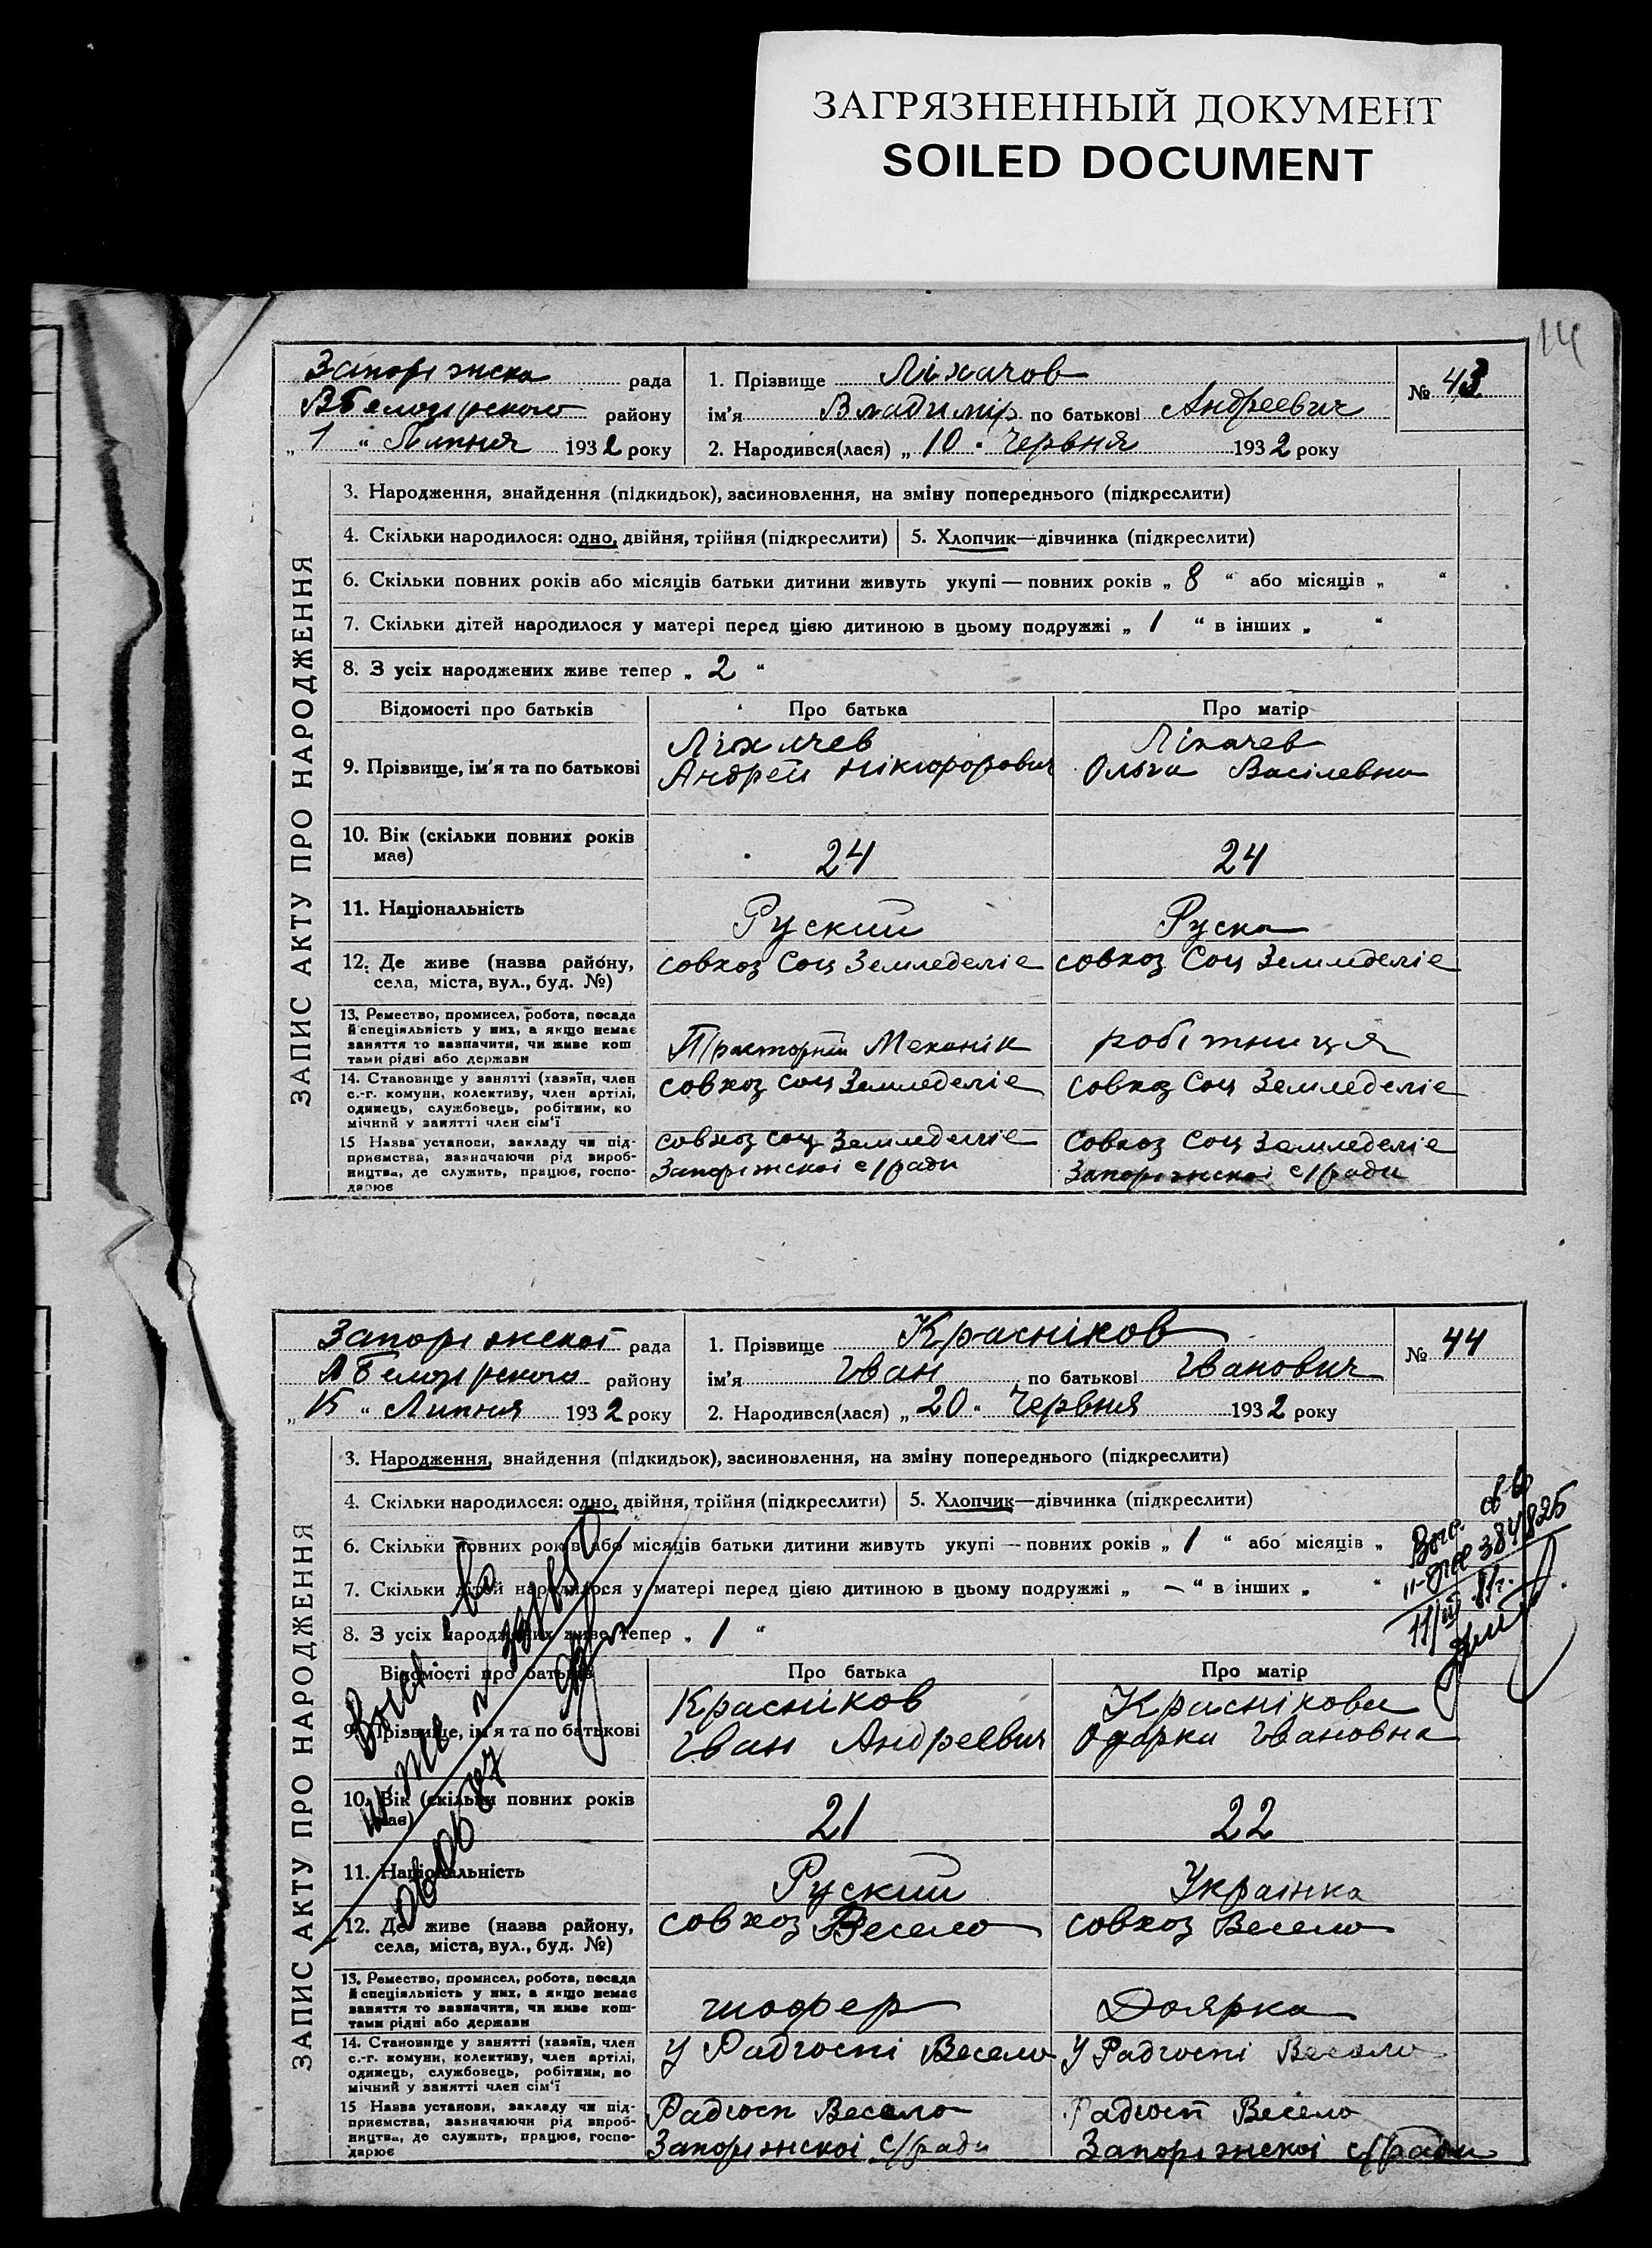 ЗАГРЯЗНЕННЫЙ ДОКУМЕНТ
SOILED DOCUMENT
14
ЗАПИС АКТУ ПРО НАРОДЖЕННЯ
Запоріжска рада
району
„ 1 “ Липня 1932 року
1. Прізвище Ліхачов
ім'я Владимір по батькові Андреевич
2. Народився(лася) „ 10 “ Червня 1932 року
№ 43
3. Народження, знайдення (підкидьок), засиновлення, на зміну попереднього (підкреслити)
4. Скільки народилося: одно, двійня, трійня (підкреслити) 5. Хлопчик—дівчинка (підкреслити)
6. Скільки повних років або місяців батьки дитини живуть укупі — повних років „ 8 “ або місяців „ “
7. Скільки дітей народилося у матері перед цією дитиною в цьому подружжі „ 1 “ в інших „ “
8. З усіх народжених живе тепер „ 2 “
Відомості про батьків Про батька Про матір
9. Прізвище, ім'я та по батькові
Ліхачев
Андрей Нікіфорович
Ліхачев
Ольга Васілевна
10. Вік (скільки повних років
має)
24 24
11. Національність Руский Руска
12. Де живе (назва району,
села, міста, вул., буд. №)
совхоз Соц Земледеліе совхоз Соц Земледеліе
13. Ремество, промисел, робота, посада
й спеціяльність у них, а якщо немає
заняття то зазначити, чи живе кош
тами рідні або держави
Тракторній Механік робітниця
14. Становище у занятті (хазяїн, член
с.-г. комуни, колективу, член артілі,
одинець, службовець, робітник, по
мічний у занятті член сім'ї
совхоз соц Земледеліе совхоз Соц Земледеліе
15 Назва установи, закладу чи під-
приємства, вазначаючи рід вироб-
ництва, де служить, працює, госпо-
дарює
совхоз соц Земледеліе
Запоріжскоі с/ради
Совхоз Соц Земледеліе
Запоріжскоі с/ради
ЗАПИС АКТУ ПРО НАРОДЖЕННЯ
Запоріжскоі рада
району
„ 15 “ Липня 1932 року
1. Прізвище Красніков
ім'я Іван по батькові Іванович
2. Народився(лася) „ 20 “ Червня 1932 року
№ 44
3. Народження, знайдення (підкидьок), засиновлення, на зміну попереднього (підкреслити)
4. Скільки народилося: одно, двійня, трійня (підкреслити) 5. Хлопчик—дівчинка (підкреслити)
6. Скільки повних років або місяців батьки дитини живуть укупі — повних років „ 1 “ або місяців „
7. Скільки дітей народилося у матері перед цією дитиною в цьому подружжі „ — “ в інших „ “
8. З усіх народжених живе тепер „ 1 “
384825
Відомості про батьків Про батька Про матір
9. Прізвище, ім'я та по батькові
Красніков
Іван Андреевич
Краснікова
Одарка Івановна
10. Вік (скільки повних років
має)
21 22
11. Національність Руский Українка
12. Де живе (назва району,
села, міста, вул., буд. №)
совхоз Весело совхоз Весело
13. Ремество, промисел, робота, посада
й спеціяльність у них, а якщо немає
заняття то зазначити, чи живе кош-
тами рідні або держави
шофер Доярка
14. Становище у занятті (хазяїн, член
с.-г. комуни, колективу, член артілі,
одинець, службовець, робітник, по
мічний у занятті член сім'ї
У Радгоспі Весело У Радгоспі Весело
15 Назва установи, закладу чи під-
приємства, вазначаючи рід вироб-
ництва, де служить, працює, госпо-
дарює
Радгосп Весело
Запоріжскоі с/ради
Радгосп Весело
Запоріжскоі с/ради